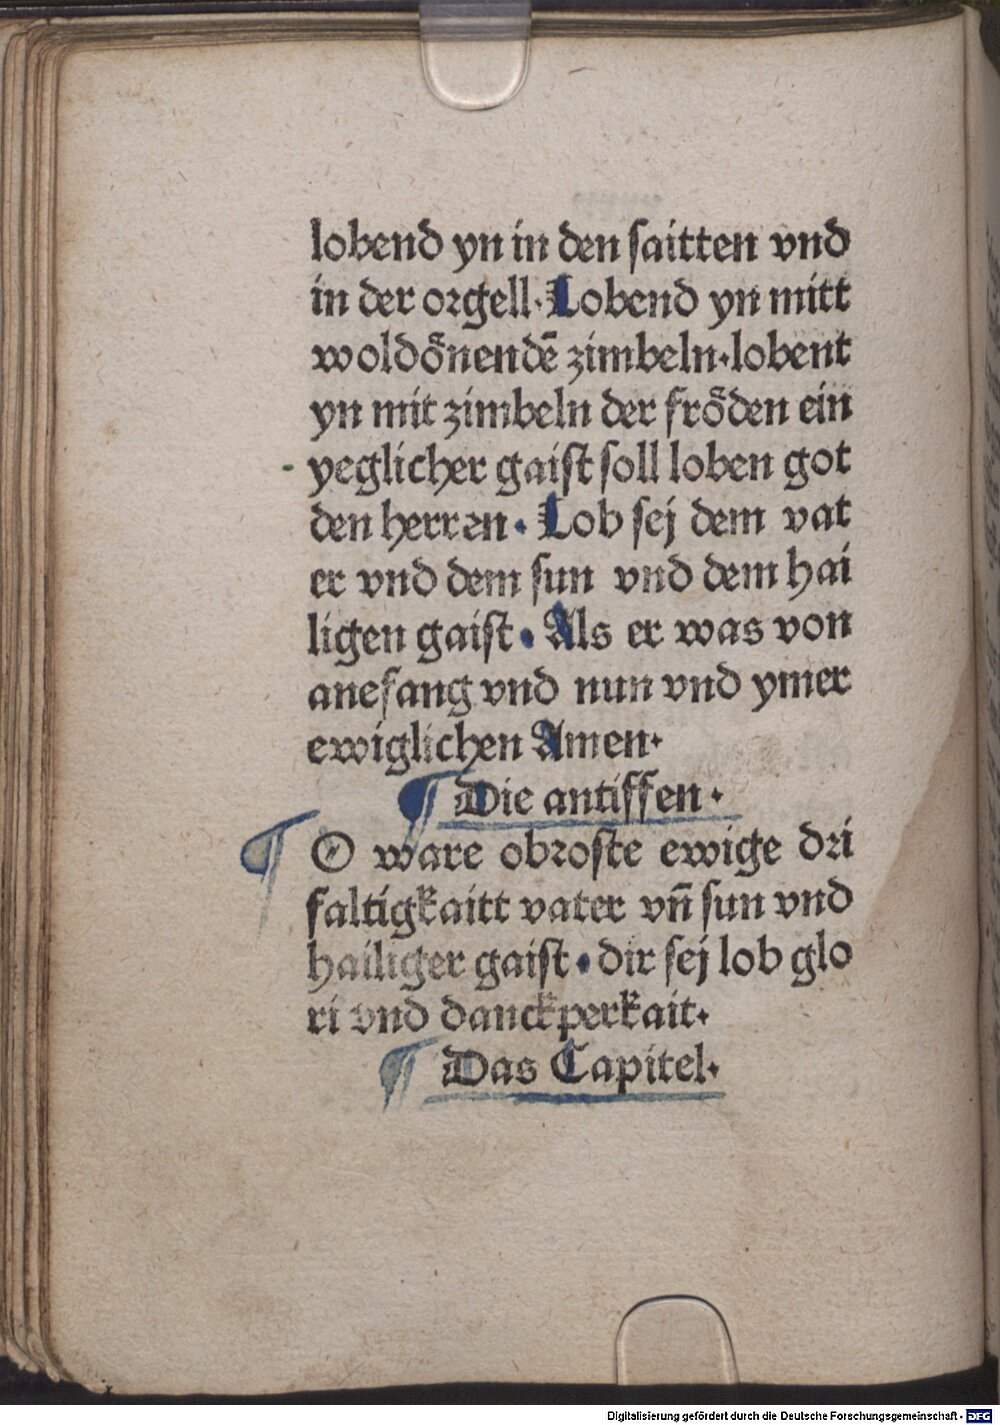 lobend yn in den ſaitten vnd
in der orgell·Lobend yn mitt
woldoͤnendē zimbeln·lobent
yn mit zimbeln der froͤden ein
yeglicher gaiſt ſoll loben got
den herren· Lob ſej dem vat
er vnd dem ſun vnd dem hai
ligen gaiſt· Als er was von
anefang vnd nun vnd ymer
ewiglichen Amen·
¶ Die antiffen·
¶ O ware obroſte ewige dri
faltigkaitt vater vn̄ ſun vnd
hailiger gaiſt· dir ſej lob glo
ri vnd danckperkait·
¶ Das Capitel·
Digitalisierung gefördert durch die Deutsche Forschungsgemeinschaft - DFG